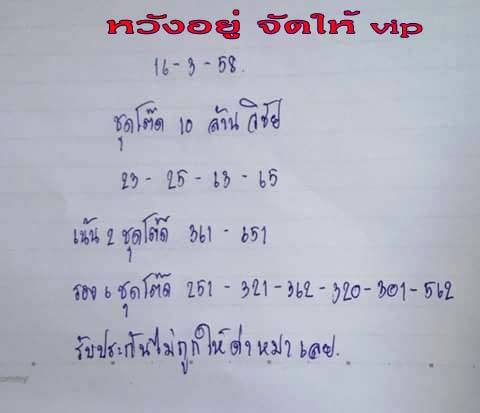 หวังอยู่ จัดให้ vip
16-3-58.
ชุดโต๊ด 10 ล้าน วิชัย
23 - 25 - 63 - 65
เน้น 2 ชุดโต๊ด 361 - 651
รอง 6 ชุดโต๊ด 251 - 321 - 362 - 320 - 301 - 562
รับประกันไม่ถูกให้ด่าหมาเลย.